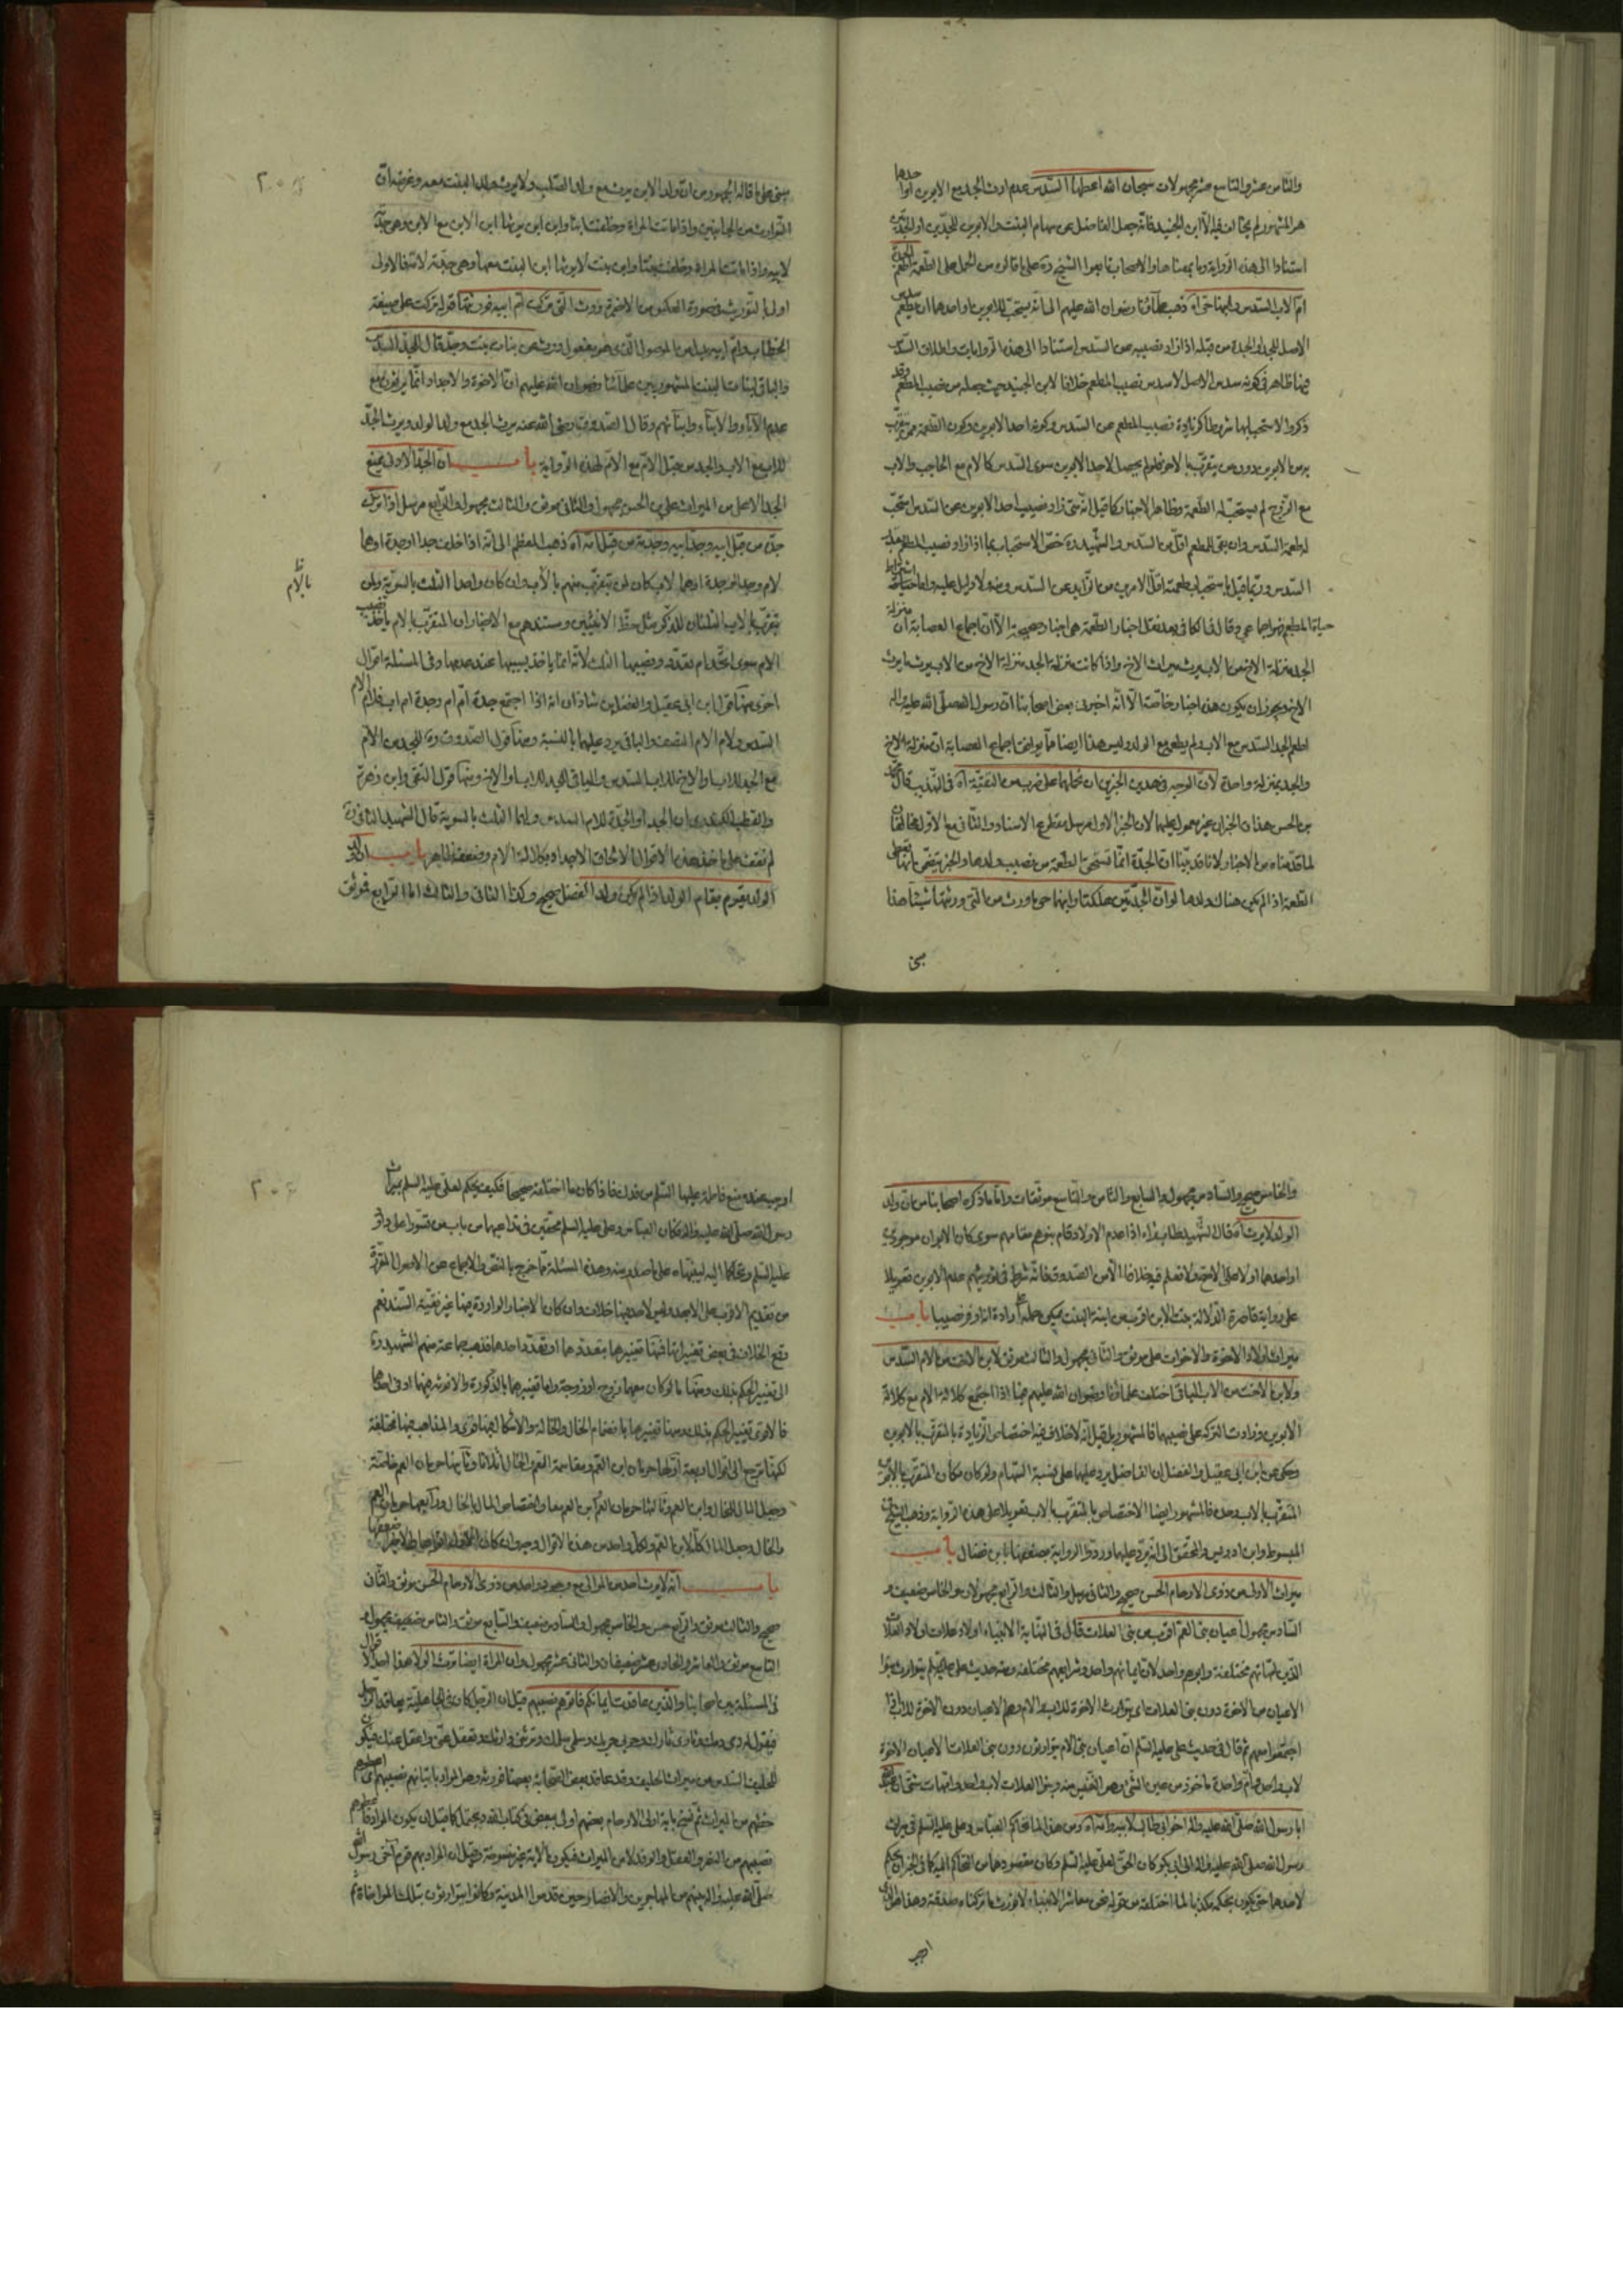 والثامن عشر والتاسع عشر مجهولان سبحان الله اعطاها السدس عدم ارث الجد مع الابوين او احدهما
هو المشهور لم يخالف فيه الا ابن الجنيد فانه جعل الفاضل عن سهام البنت والابوين للجدين او الجدتين
استنادا الى هذه الرواية وما بمعناها والاصحاب تابعوا الشيخ ره على ما قالوه من الحمل على الطعمة اطعم الجدة
ام الاب السدس وابنها حي اه ذهب علماؤنا رضوان الله عليهم الى انه يستحب للابوين او احدهما ان يطعم سدس
الاصل للجد او الجدة من قبله اذا زاد نصيبه عن السدس استنادا الى هذه الروايات واطلاق السدس
فيها ظاهر في كونه سدس الاصل لا سدس نصيب المطعم خلافا لابن الجنيد حيث جعله من نصيب المطعم وقد
ذكروا لاستحبابها شروطا كزيادة نصيب المطعم عن السدس وكونه احد الابوين وكون الطعمة لمن يتقرب
به من الابوين دون من يتقرب بالاخر فلو لم يحصل لاحد الابوين سوى السدس كالام مع الحاجب والاب
مع الزوج لم يستحب له الطعمة وظاهر الاخبار كما قيل انه متى زاد نصيب احد الابوين عن السدس استحب
له طعمة السدس وان بقي للمطعم اقل من السدس والشهيد ره خص الاستحباب بما اذا زاد نصيب المطعم بقدر
السدس وربما قيل باستحباب طعمة اقل الامرين من الزايد عن السدس ومنه ولا دليل عليه واما اشتراط
حياة المطعم فهو اجماعي وقال في الكافي بعد نقل اخبار الطعمة هي اخبار صحيحة الا ان اجماع العصابة ان منزلة
الجد منزلة الاخ من الاب يرث ميراث الاخ واذا كانت منزلة الجد منزلة الاخ من الاب يرث ما يرث
الاخ ويجوز ان يكون هذه اخبار خاصة الا انه اخبرني بعض اصحابنا ان رسول الله صلى الله عليه واله
اطعم الجد السدس مع الاب ولم يطعمه مع الولد وليس هذا ايضا مما يوافق اجماع العصابة ان منزلة الاخ
والجد بمنزلة واحدة لان الوجه في هذين الخبرين ان نحملهما على ضرب من التقية اه في التهذيب قال محمد
بن الحسن هذان الخبران غير معمول عليهما لان الخبر الاول مرسل مقطوع الاسناد والثاني مع الاول مخالفان
لما قدمناه من الاخبار لانا قد بينا ان الجدة انما تستحق الطعمة من نصيب ولدها والخبر يقتضي بانها تعطى
الطعمة اذا لم يكن هناك ولدها لو ان الجدتين هلكتا وابنهما حي ما ورث من التي ورثتها شيئا هذا
مبني
مبني على ما قاله الجمهور من ان ولد الابن يرث مع ولد الصلب ولا يرث ولد البنت معه وغرضه ان
التوارث من الجانبين واذا ماتت المراة وخلفت ابنا وابن ابن يرثها ابن الابن مع الابن وهي جدة
لابيه واذا ماتت امراة وخلفت بنتا وابن بنت لا يرثها ابن البنت معها وهي جدته لامه فالاولى
اولى بالتوريث فصورة العكس من الاخيرة وورث التي تركت ام ابيه
الخطاب وام ابيه بدل من الموصول الذي هو مفعول ورث عن بنات بنت وجد قال للجد السدس
والباقي لبنات البنت المشهور بين علمائنا رضوان الله عليهم ان الاخوة والاجداد انما يرثون مع
عدم الآباء والابناء وابنائهم وقال الصدوق رضي الله عنه يرث الجد مع ولد الولد ويرث الجد
للاب مع الاب والجد من قبل الام مع الام لهذه الرواية باب ان الجد الادنى يمنع
الجد الاعلى من الميراث علي بن الحسن مجهول والثاني موثق والثالث مجهول والرابع مرسل اذا ترك
جدة من قبل ابيه وجد ابيه وجدته من قبل امه اه ذهب المعظم الى انه اذا خلف جدا او جدة او هما
لام وجدا او جدة او هما لاب كان لمن يتقرب منهم بالام الثلث وان كان واحدا الثلث بالسوية ولمن
يتقرب بالاب الثلثان للذكر مثل حظ الانثيين ومستندهم مع الاخبار ان المتقرب بالام ياخذ نصيب
الام سوى اتحد ام تعدد ونصيبها الثلث لانه انما ياخذ بسببها عند عدمها وفي المسئلة اقوال
اخرى منها قول ابن ابي عقيل والفضل بن شاذان انه اذا اجتمع جدة ام ام وجدة ام اب فلام الام
السدس ولام الاب النصف والباقي يرد عليهما بالنسبة ومنها قول الصدوق ره للجد من الام
مع الجد للاب او الاخ للاب السدس والباقي للجد للاب او الاخ ومنها قول التقي وابن زهرة
والقطب الكيدري ان للجد او الجدة للام السدس ولهما الثلث بالسوية قال الشهيد الثاني ره
لم نقف على ماخذ هذه الاقوال الا الحاق الاجداد بكلالة الام وضعفه ظاهر باب ان ولد
الولد يقوم مقام الولد اذا لم يكن ولد الفضل صحيح وكذا الثاني والثالث اما الرابع فموثق
بالام
٢٠٥
والخامس صحيح والسادس مجهول والسابع والثامن والتاسع موثقات واما ما ذكره اصحابنا من ان ولد
الولد لا يرث اه قال الشهيد طاب ثراه اذا عدم الاولاد قام بنوهم مقامهم سوى كان الابوان موجودين
او احدهما او لا على الاصح ولا نعلم فيه خلافا الا من الصدوق فانه شرط في توريثهم عدم الابوين تعويلا
على رواية قاصرة الدلالة بنت الابن اقرب من ابنة البنت يمكن حمله على ارادة انه اوفر نصيبا باب
ميراث اولاد الاخوة والاخوات علي موثق والثاني مجهول والثالث موثق لابن الاخت من الام السدس
ولابن الاخت من الاب الباقي اختلف علماؤنا رضوان الله عليهم فيما اذا اجتمع كلالة الام مع كلالة
الابوين وزادت التركة على نصيبهما فالمشهور بل قيل انه لا خلاف فيه اختصاص الزيادة بالمتقرب بالابوين
وحكى عن ابن ابي عقيل والفضل ان الفاضل يرد عليهما على نسبة السهام ولو كان مكان المتقرب بالابوين
المتقرب بالاب وحده فالمشهور ايضا الاختصاص بالمتقرب بالاب تعويلا على هذه الرواية وذهب الشيخ في
المبسوط وابن ادريس والمحقق الى انه يرد عليهما وردوا الرواية بضعفها بابن فضال باب
ميراث الاولى من ذوي الارحام الحسن صحيح والثاني مرسل والثالث والرابع مجهولان والخامس ضعيف و
السادس مجهول اعيان بني العم اقرب من بني العلات قال في النهاية الانبياء اولاد علات اولاد العلات
الذين امهاتهم مختلفة وابوهم واحد لان ايمانهم واحد وشرايعهم مختلفة ومنه حديث علي عليه السلم يتوارث بنوا
الاعيان من الاخوة دون بني العلات اي يتوارث الاخوة للاب والام وهم الاعيان دون الاخوة للاب اذا
اجتمعوا معهم ثم قال في حديث علي عليه السلم ان اعيان بني الام يتوارثون دون بني العلات الاعيان الاخوة
لاب واحد وام واحدة ماخوذ من عين الشيء وهو النفيس منه وبنوا العلات لاب واحد وامهات شتى
ابا رسول الله صلى الله عليه واله اخو ابي طالب لابيه وامه اه ومن هذا لما تحاكم العباس وعلي عليه السلم في ميراث
رسول الله صلى الله عليه واله الى ابي بكر كان الحق لعلي عليه السلم وكان مقصودهما من التحاكم اليه كما في الخبر ان يحكم
لاحدهما حتى يكون بحكمه مكذبا لما اختلقه من قوله نحن معاشر الانبياء لا نورث ما تركناه صدقة وهذا هو الذي
اوجب
اوجب عنده منع فاطمة عليها السلم من فدك فاذا كان ما اختلقه صحيحا فكيف يحكم لعلي عليه السلم بميراث
رسول الله صلى الله عليه واله فكان العباس وعلي عليه السلم محقين في تداعيهما من باب من تسوروا على داود
عليه السلم وتحاكما اليه لينبهاه على ما صدر منه وهذه المسئلة مما خرج بالنص والاجماع عن الاصول المقررة
من تقديم الاقرب على الابعد وليس لاحد فيها خلاف وان كان الاخبار الواردة فيها غير نقية السند نعم
وقع الخلاف في بعض تغييراتها فمنها تغييرها بتعددهما او تعدد احدهما فذهب جماعة منهم الشهيد ره
الى تغيير الحكم بذلك ومنها ما لو كان معهما زوج او زوجة ومنها تغييرهما بالذكورة والانوثة فيهما او في احدهما
فالاقوى تغيير الحكم بذلك ومنها تغييرها بانضمام الخال والخالة والاشكال فيها قوي والمذاهب فيها مختلفة
لكنها ترجع الى اقوال اربعة اولها حرمان ابن العم ومقاسمة العم والخال اثلاثا وثانيها حرمان العم خاصة
وجعل المال للخال وابن العم وثالثها حرمان العم وابن العم معا واختصاص المال بالخال ورابعها حرمان العم
والخال وجعل المال كله لابن العم ولكل واحد من هذه الاقوال وجه وان كان
باب انه لا يرث احد من الموالي مع وجود واحد من ذوي الارحام الحسن موثق والثاني
صحيح والثالث موثق والرابع حسن والخامس مجهول والسادس ضعيف والسابع موثق والثامن ضعيف مجهول و
التاسع موثق والعاشر والحادي عشر ضعيفان والثاني عشر مجهول وان المراة ايضا ترث الولاء هذا احد الاقوال
في المسئلة بين اصحابنا والذين عاقدت ايمانكم فاتوهم نصيبهم قيل ان الرجل كان في الجاهلية يعاقد الرجل
فيقول له دمي دمك وثاري ثارك وحربي حربك وسلمي سلمك وترثني وارثك وتعقل عني واعقل عنك فيكون
للحليف السدس من ميراث الحليف وقد عاقد بعض الصحابة بعضا فورثه وهو المراد بايتائهم نصيبهم اي اعطوهم
حظهم من الميراث ثم نسخ باية اولي الارحام بعضهم اولى ببعض في كتاب الله ويحتمل كما قيل ان يكون المراد فاعطوهم
نصيبهم من النصر والعقل والرفد لا من الميراث فيكون الاية غير منسوخة وقيل ان المراد بهم قوم آخى رسول الله
صلى الله عليه واله بينهم من المهاجرين والانصار حين قدموا المدينة وكانوا يتوارثون بتلك المواخاة ثم